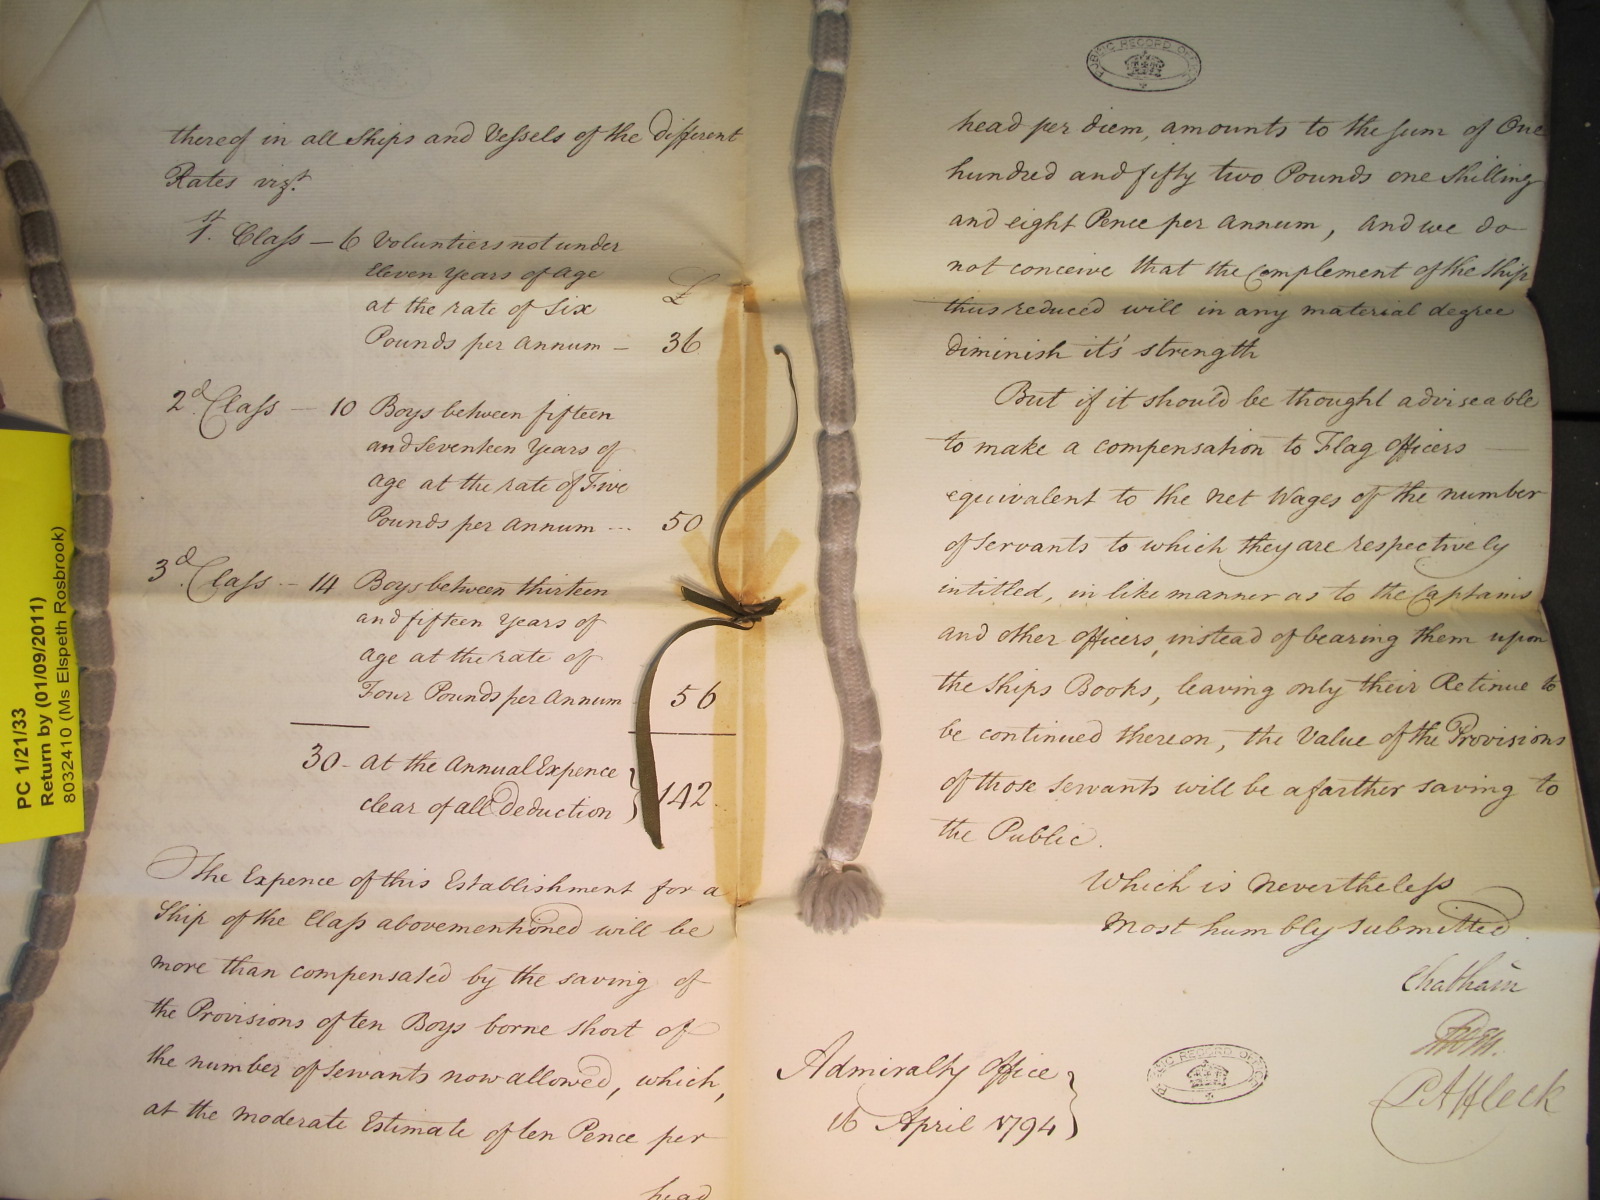 thereof in all Ships and Vessels of the different
Rates vizt.
1st. Class – 6 Voluntiers not under
Eleven Years of Age
at the rate of Six £
Pounds per Annum – 36
2d. Class – 10 Boys between fifteen
and Seventeen Years of
Age at the rate of Five
Pounds per Annum ... 50
3d. Class – 14 Boys between thirteen
and fifteen Years of
Age at the rate of
Four Pounds per Annum 56
30 – at the Annual Expence
clear of all Deduction } 142.
The Expence of this Establishment for a
Ship of the Class abovementioned will be
more than compensated by the saving of
the Provisions of ten Boys borne short of
the number of Servants now allowed, which,
at the moderate Estimate of ten Pence per
head
PUBLIC RECORD OFFICE
head per diem, amounts to the sum of One
hundred and fifty two Pounds one Shilling
and eight Pence per Annum, and we do
not conceive that the Complement of the Ship
thus reduced will in any material degree
diminish it's strength
But if it should be thought adviseable
to make a compensation to Flag Officers
equivalent to the net Wages of the number
of Servants to which they are respectively
intitled, in like manner as to the Captains
and other Officers, instead of bearing them upon
the Ships Books, leaving only their Retinue to
be continued thereon, the Value of the Provisions
of those Servants will be a farther saving to
the Public.
Which is nevertheless
most humbly submitted.
Chatham
P Affleck
Admiralty Office
16 April 1794 }
PUBLIC RECORD OFFICE
PC 1/21/33
Return by (01/09/2011)
8032410 (Ms Elspeth Rosbrook)